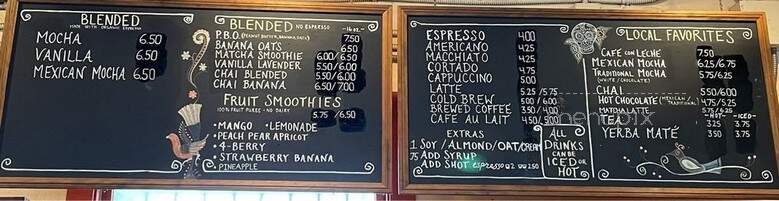 BLENDED
MADE WITH ORGANIC ESPRESSO
MOCHA 6.50
VANILLA 6.50
MEXICAN MOCHA 6.50
BLENDED NO ESPRESSO
16oz.
P.B.O. (PEANUT BUTTER, BANANA, OATS) 7.50
BANANA OATS 6.50
MATCHA SMOOTHIE 6.00/6.50
VANILLA LAVENDER 5.50/6.00
CHAI BLENDED 5.50/6.00
CHAI BANANA 6.50/7.00
FRUIT SMOOTHIES
100% FRUIT PUREE - NO DAIRY 5.75/6.50
• MANGO • LEMONADE
• PEACH PEAR APRICOT
• 4-BERRY
• STRAWBERRY BANANA
• PINEAPPLE
ESPRESSO 4.00
AMERICANO 4.25
MACCHIATO 4.25
CORTADO 4.75
CAPPUCCINO 5.00
LATTE 5.25/5.75
COLD BREW 5.00/6.00
BREWED COFFEE 3.50/4.00
CAFE AU LAIT 4.50/5.00
EXTRAS
1 SOY/ALMOND/OAT/CREAM
.75 ADD SYRUP
ADD SHOT espresso
ALL
DRINKS
CAN BE
ICED OR
HOT
LOCAL FAVORITES
CAFE CON LECHE 7.50
MEXICAN MOCHA 6.25/6.75
TRADITIONAL MOCHA 5.75/6.25
(WHITE/CHOCOLATE)
CHAI 5.50/6.00
HOT CHOCOLATE (MEXICAN/TRADITIONAL) 4.75/5.25
5.75/6.25
-HOT- -ICED-
TEA 3.25 3.75
YERBA MATÉ 3.50 3.75